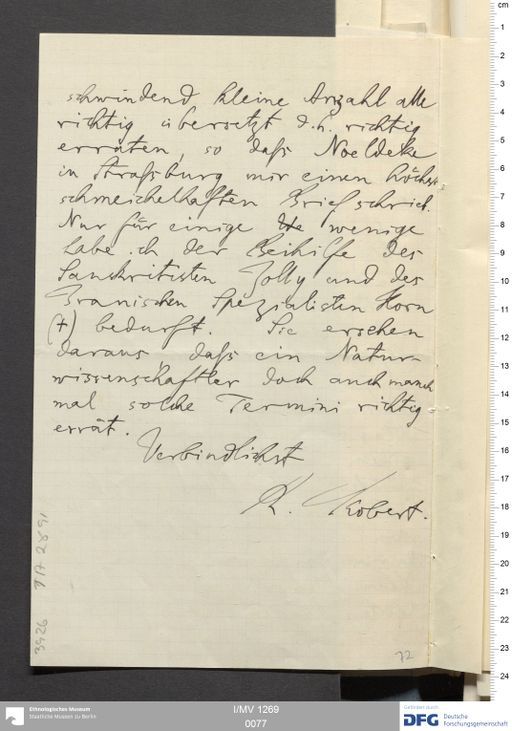 schwindend kleine Anzahl alle
richtig übersetzt d. h. richtig
erraten, so daſs Noeldeke
in Straſsburg mir einen höchst
schmeichelhaften Brief schrieb.
Nur für einige wenige
habe ich der Beihilfe des
Sanskritisten Jolly und des
Iranischen Spezialisten Horn
(†) bedurft. Sie ersehen
daraus, daſs ein Natur-
wissenschaftler doch auch manch
mal solche Termini richtig
errät.
Verbindlichst
R. Kobert.
3926 IA 2891
72
cm
1
2
3
4
5
6
7
8
9
10
11
12
13
14
15
16
17
18
19
20
21
22
23
24
Ethnologisches Museum
Staatliche Museen zu Berlin
I/MV 1269
0077
Gefördert durch
DFG Deutsche
Forschungsgemeinschaft